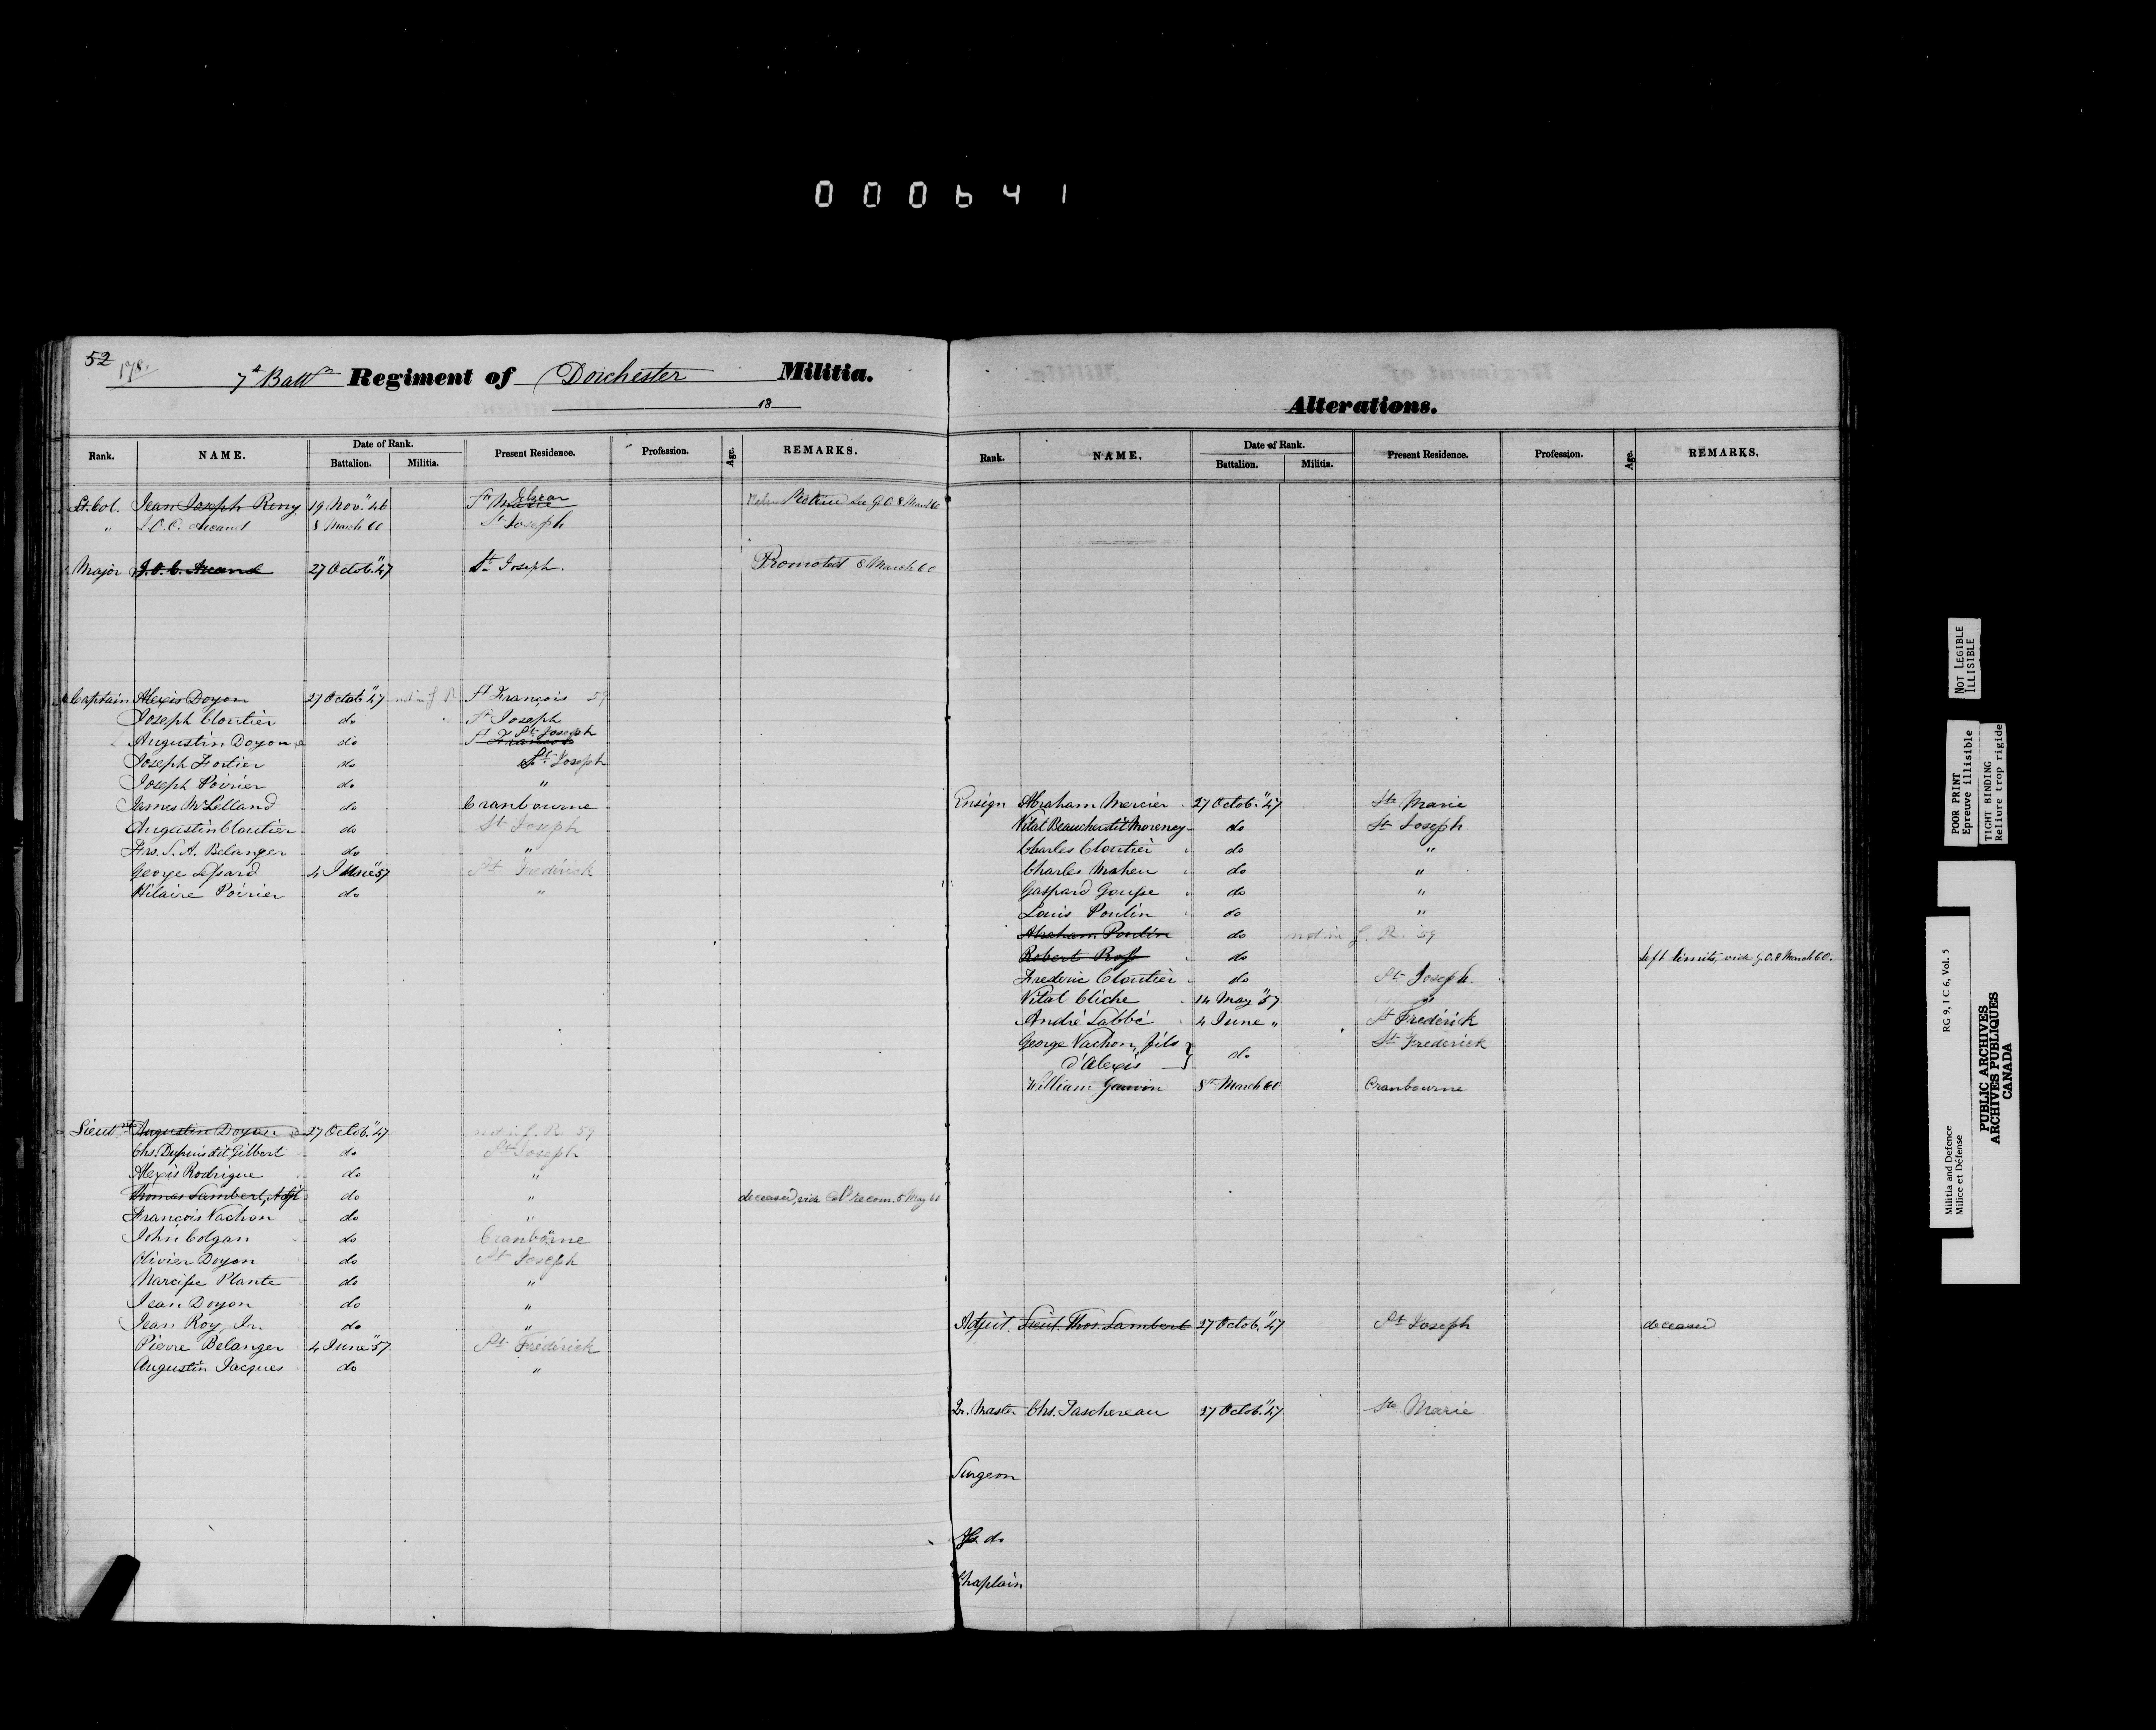 000641
52
178.
7th Battn Regiment of Dorchester Militia.
18
Rank. NAME. Date of Rank. Battalion. Militia. Present Residence. Profession. Age. REMARKS.
Lt. Col. Jean Joseph Reny 19 Nov. "46 Ste Marie Elzear Retired See G.O. 8 March 60
" J.O.C. Arcand 8 March 60 St Joseph
Major J.O.C. Arcand 27 Octob. "47 St Joseph. Promoted 8 March 60
Captain Alexis Doyon 27 Octob "47 not in f. R. St François 59
Joseph Cloutier do St Joseph
Augustin Doyon do St François St Joseph
Joseph Fortier do St Joseph
Joseph Poirier do "
James McLelland do Cranbourne
Augustin Cloutier do St Joseph
Frs. S. A. Belanger do "
George Lessard 4 June "57 St Frederick
Hilaire Poirier do "
Lieutnt Augustin Doyon 27 Octob. "47 not in f. R. 59
Chs. Dupuis dit Gilbert do St Joseph
Alexis Rodrigue do "
Thomas Lambert, Adjt do " deceased, vide Col's recom. 5 May 60
François Vachon do "
John Colgan do Cranborne
Olivier Doyon do St Joseph
Narcisse Plante do "
Jean Doyon do "
Jean Roy, Jr. do "
Pierre Belanger 4 June "57 St Fréderick
Augustin Jacques do "
Alterations.
Rank. NAME. Date of Rank. Battalion. Militia. Present Residence. Profession. Age. REMARKS.
Ensign Abraham Mercier 27 Octob. "47 Ste Marie
Vital Beaucher dit Morency do St Joseph
Charles Cloutier do "
Charles Maheu do "
Gaspard Goupe do "
Louis Poulin do "
Abraham Poulin do not in f. R. 59
Robert Ross do Left limits, vide G.O. 8 March 60.
Frederic Cloutier do St Joseph.
Vital Cliche 14 May "57 "
André Labbé 4 June " St Frederick
George Vachon, fils do St Frederick
d'Alexis
William Gawin 8th March 60 Cranbourne
Adjut. Lieut. Thos. Lambert 27 Octob. "47 St Joseph deceased
Qr. Master Chs. Taschereau 27 Octob. "47 Ste Marie
Surgeon
do
Chaplain
NOT LEGIBLE
ILLISIBLE
POOR PRINT
Epreuve illisible
TIGHT BINDING
Reliure trop rigide
Militia and Defence RG 9, I C 6, Vol. 5
Milice et Défense
PUBLIC ARCHIVES
ARCHIVES PUBLIQUES
CANADA